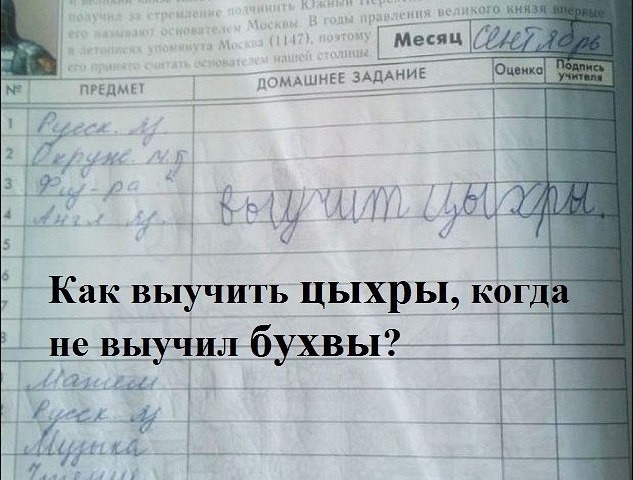 получил за стремление подчинить Южный
его называют основателем Москвы. В годы правления великого князя впервые
в летописях упомянута Москва (1147), поэтому
его принято считать основателем нашей столицы.
Месяц Сентябрь
№ ПРЕДМЕТ ДОМАШНЕЕ ЗАДАНИЕ Оценка Подпись учителя
1 Русск. яз
2 Окруж. м.
3 Физ-ра
4 Англ яз. выучит цыхры.
5
6
Как выучить цыхры, когда
7
не выучил бухвы?
8
Матем
Русск. яз
Музыка
Чтение